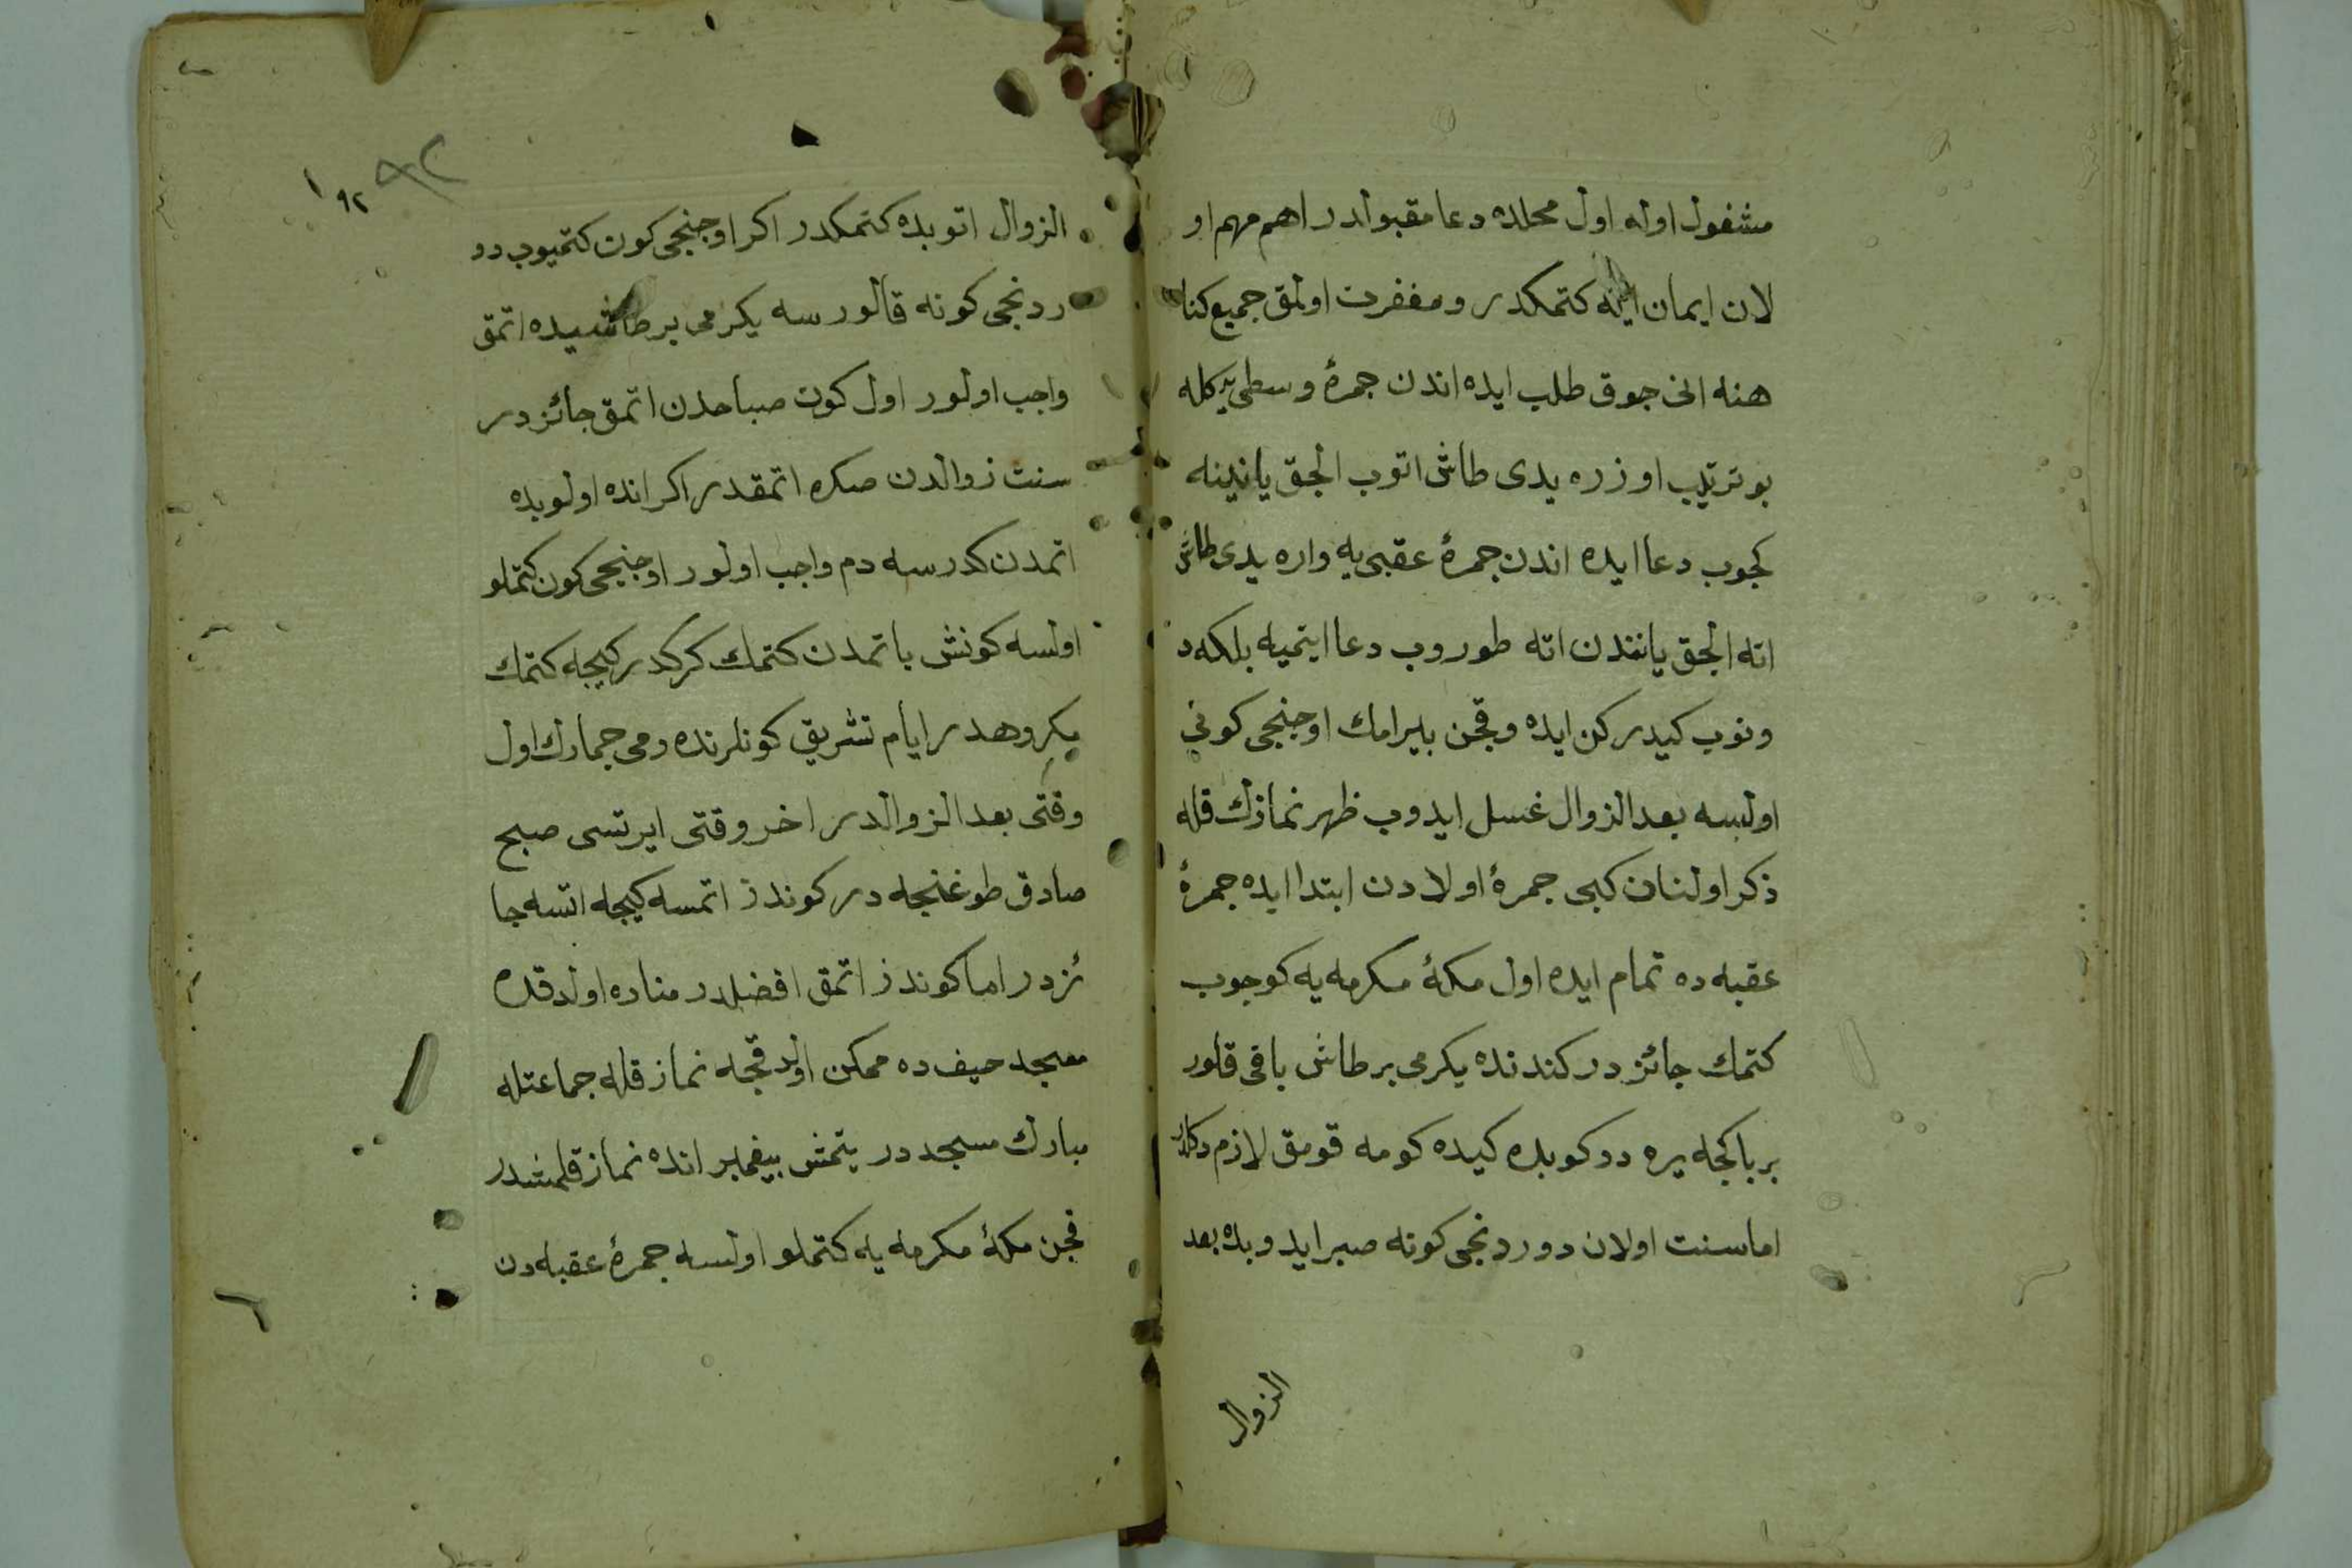 مشغول اوله اول محلده دعا مقبولدر اهم مهم او
لان ايمان ايله كتمكدر ومغفرت اولمق جميع كنا
هنه انى جوق طلب ايده اندن جمرۀ وسطى يه كله
بو ترتيب اوزره يدى طاش اتوب الجق يانينه
كجوب دعا ايده اندن جمرۀ عقبى يه واره يدى طاش
اته الجق ياننندن اته طوروب دعا ايتميه بلكه د
ونوب كيدركن ايده وقجن بيرامك اوجنجى كونى
اولسه بعد الزوال غسل ايدوب ظهر نمازك قله
ذكر اولنان كبى جمرۀ اولادن ابتدا ايده جمرۀ
عقبه ده تمام ايده اول مكۀ مكرمه يه كوجوب
كتمك جائز در كندنده يكرمى بر طاش باقى قلور
بر باكجه يره دوكوبده كيده كومه قومق لازم دكلدر
اما سنت اولان دوردنجى كونه صبر ايدوبده بعد
الزوال
٩٢
١٩٢
الزوال اتوبده كتمكدر اكر اوجنجى كون كتميوب دو
ردنجى كونه قالورسه يكرمى بر طاش يده اتمق
واجب اولور اول كون صباحدن اتمق جائز در
سنت زوالدن صكره اتمقدر اكر انده اولوبده
اتمدن كدرسه دم واجب اولور اوجنجى كون كتملو
اولسه كونش باتمدن كتمك كركدر كيجه كتمك
مكروهدر ايام تشريق كونلرنده رمى جمارك اول
وقتى بعد الزوالدر اخر وقتى ايرتسى صبح
صادق طوغنجه در كوندز اتمسه كيجه اتسه جا
ئزدر اما كوندز اتمق افضلدر مناده اولدقده
مسجد حيف ده ممكن اولدقجه نماز قله جماعتله
مبارك مسجددر يتمش بيغمبر انده نماز قلمشدر
قجن مكۀ مكرمه يه كتملو اولسه جمرۀ عقبه دن